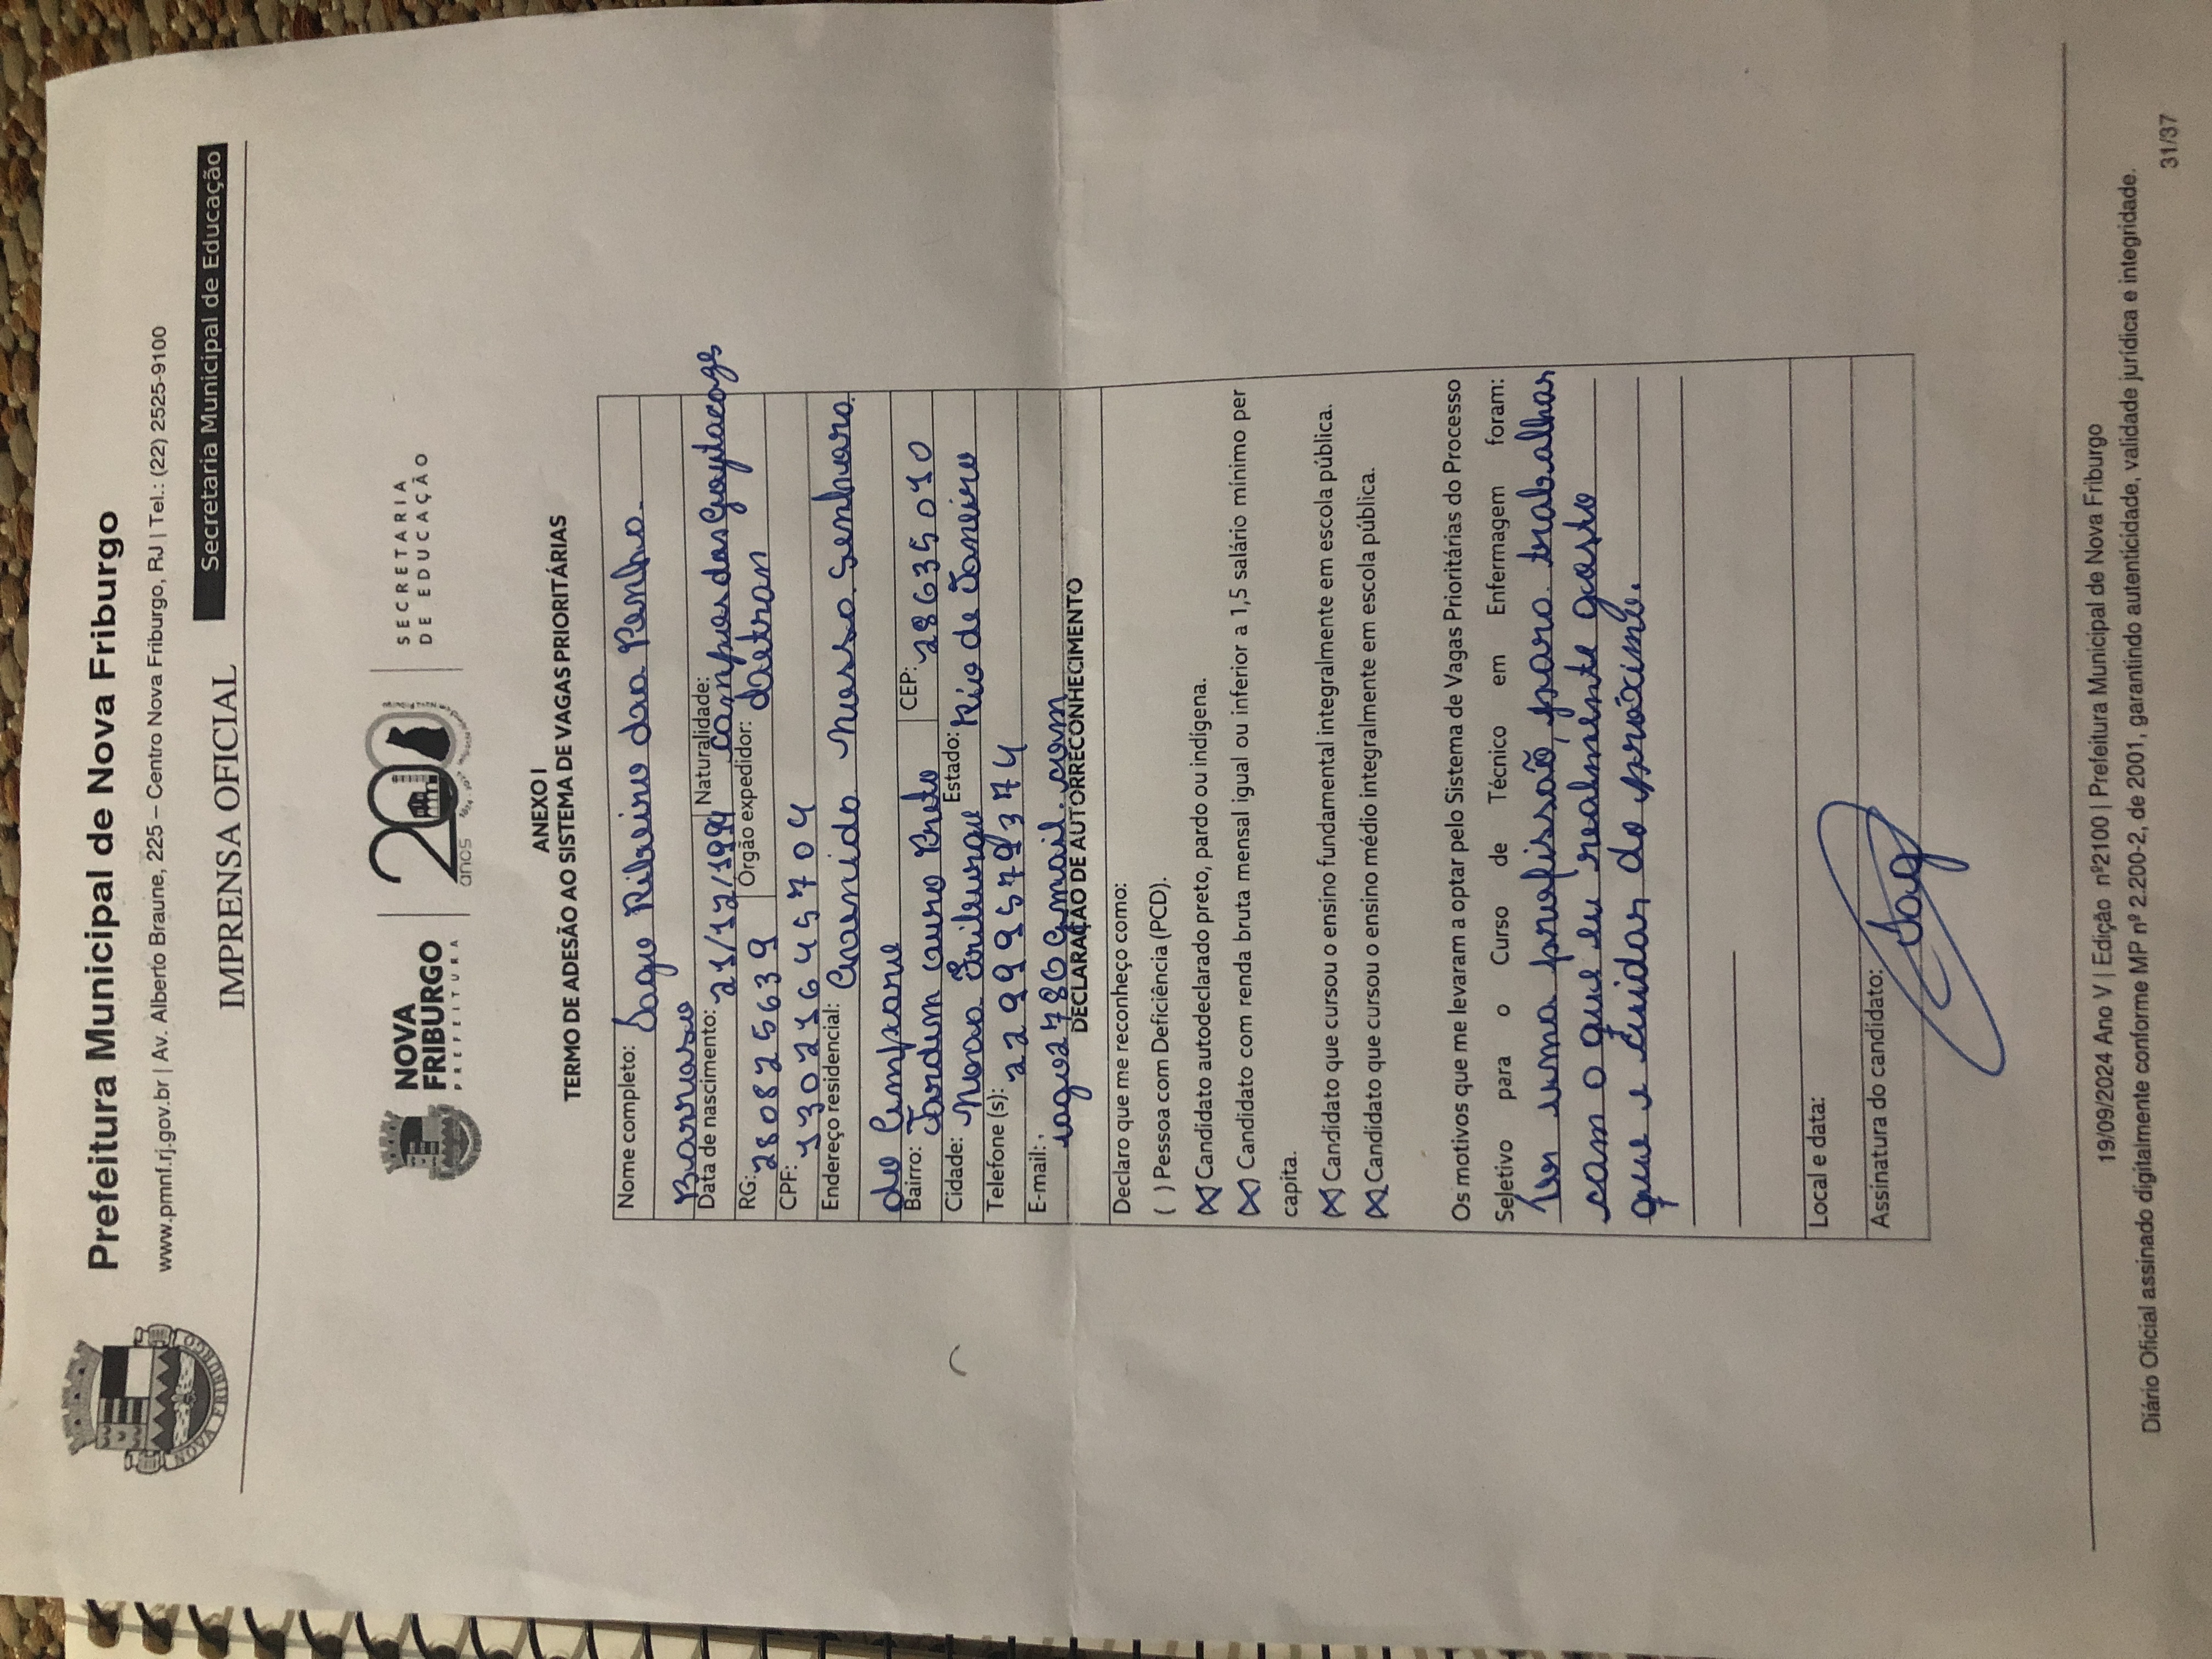 Prefeitura Municipal de Nova Friburgo
www.pmnf.rj.gov.br | Av. Alberto Braune, 225 – Centro Nova Friburgo, RJ | Tel.: (22) 2525-9100
Secretaria Municipal de Educação
IMPRENSA OFICIAL
NOVA FRIBURGO
NOVA
FRIBURGO
PREFEITURA
200
anos
SECRETARIA
DE EDUCAÇÃO
ANEXO I
TERMO DE ADESÃO AO SISTEMA DE VAGAS PRIORITÁRIAS
Nome completo: Iago Ribeiro daa Penha
Barroso
Data de nascimento: 21/12/1994 Naturalidade: campos dos Goytacazes
RG: 280825639 Órgão expedidor: Detran
CPF: 13021645704
Endereço residencial: Avenida Nossa Senhora
do Amparo
Bairro: Jardim ouro Preto CEP: 28635010
Cidade: Nova Friburgo Estado: Rio de Janeiro
Telefone (s): 22999579374
E-mail: iago2780gmail.com
DECLARAÇÃO DE AUTORRECONHECIMENTO
Declaro que me reconheço como:
( ) Pessoa com Deficiência (PCD).
(X) Candidato autodeclarado preto, pardo ou indígena.
(X) Candidato com renda bruta mensal igual ou inferior a 1,5 salário mínimo per
capita.
(X) Candidato que cursou o ensino fundamental integralmente em escola pública.
(X) Candidato que cursou o ensino médio integralmente em escola pública.
Os motivos que me levaram a optar pelo Sistema de Vagas Prioritárias do Processo
Seletivo para o Curso de Técnico em Enfermagem foram:
Ter uma profissão, para trabalhar
com o que eu realmente gosto
que e cuidar do próximo.
Local e data:
Assinatura do candidato: Iag
19/09/2024 Ano V | Edição nº2100 | Prefeitura Municipal de Nova Friburgo
Diário Oficial assinado digitalmente conforme MP nº 2.200-2, de 2001, garantindo autenticidade, validade jurídica e integridade.
31/37